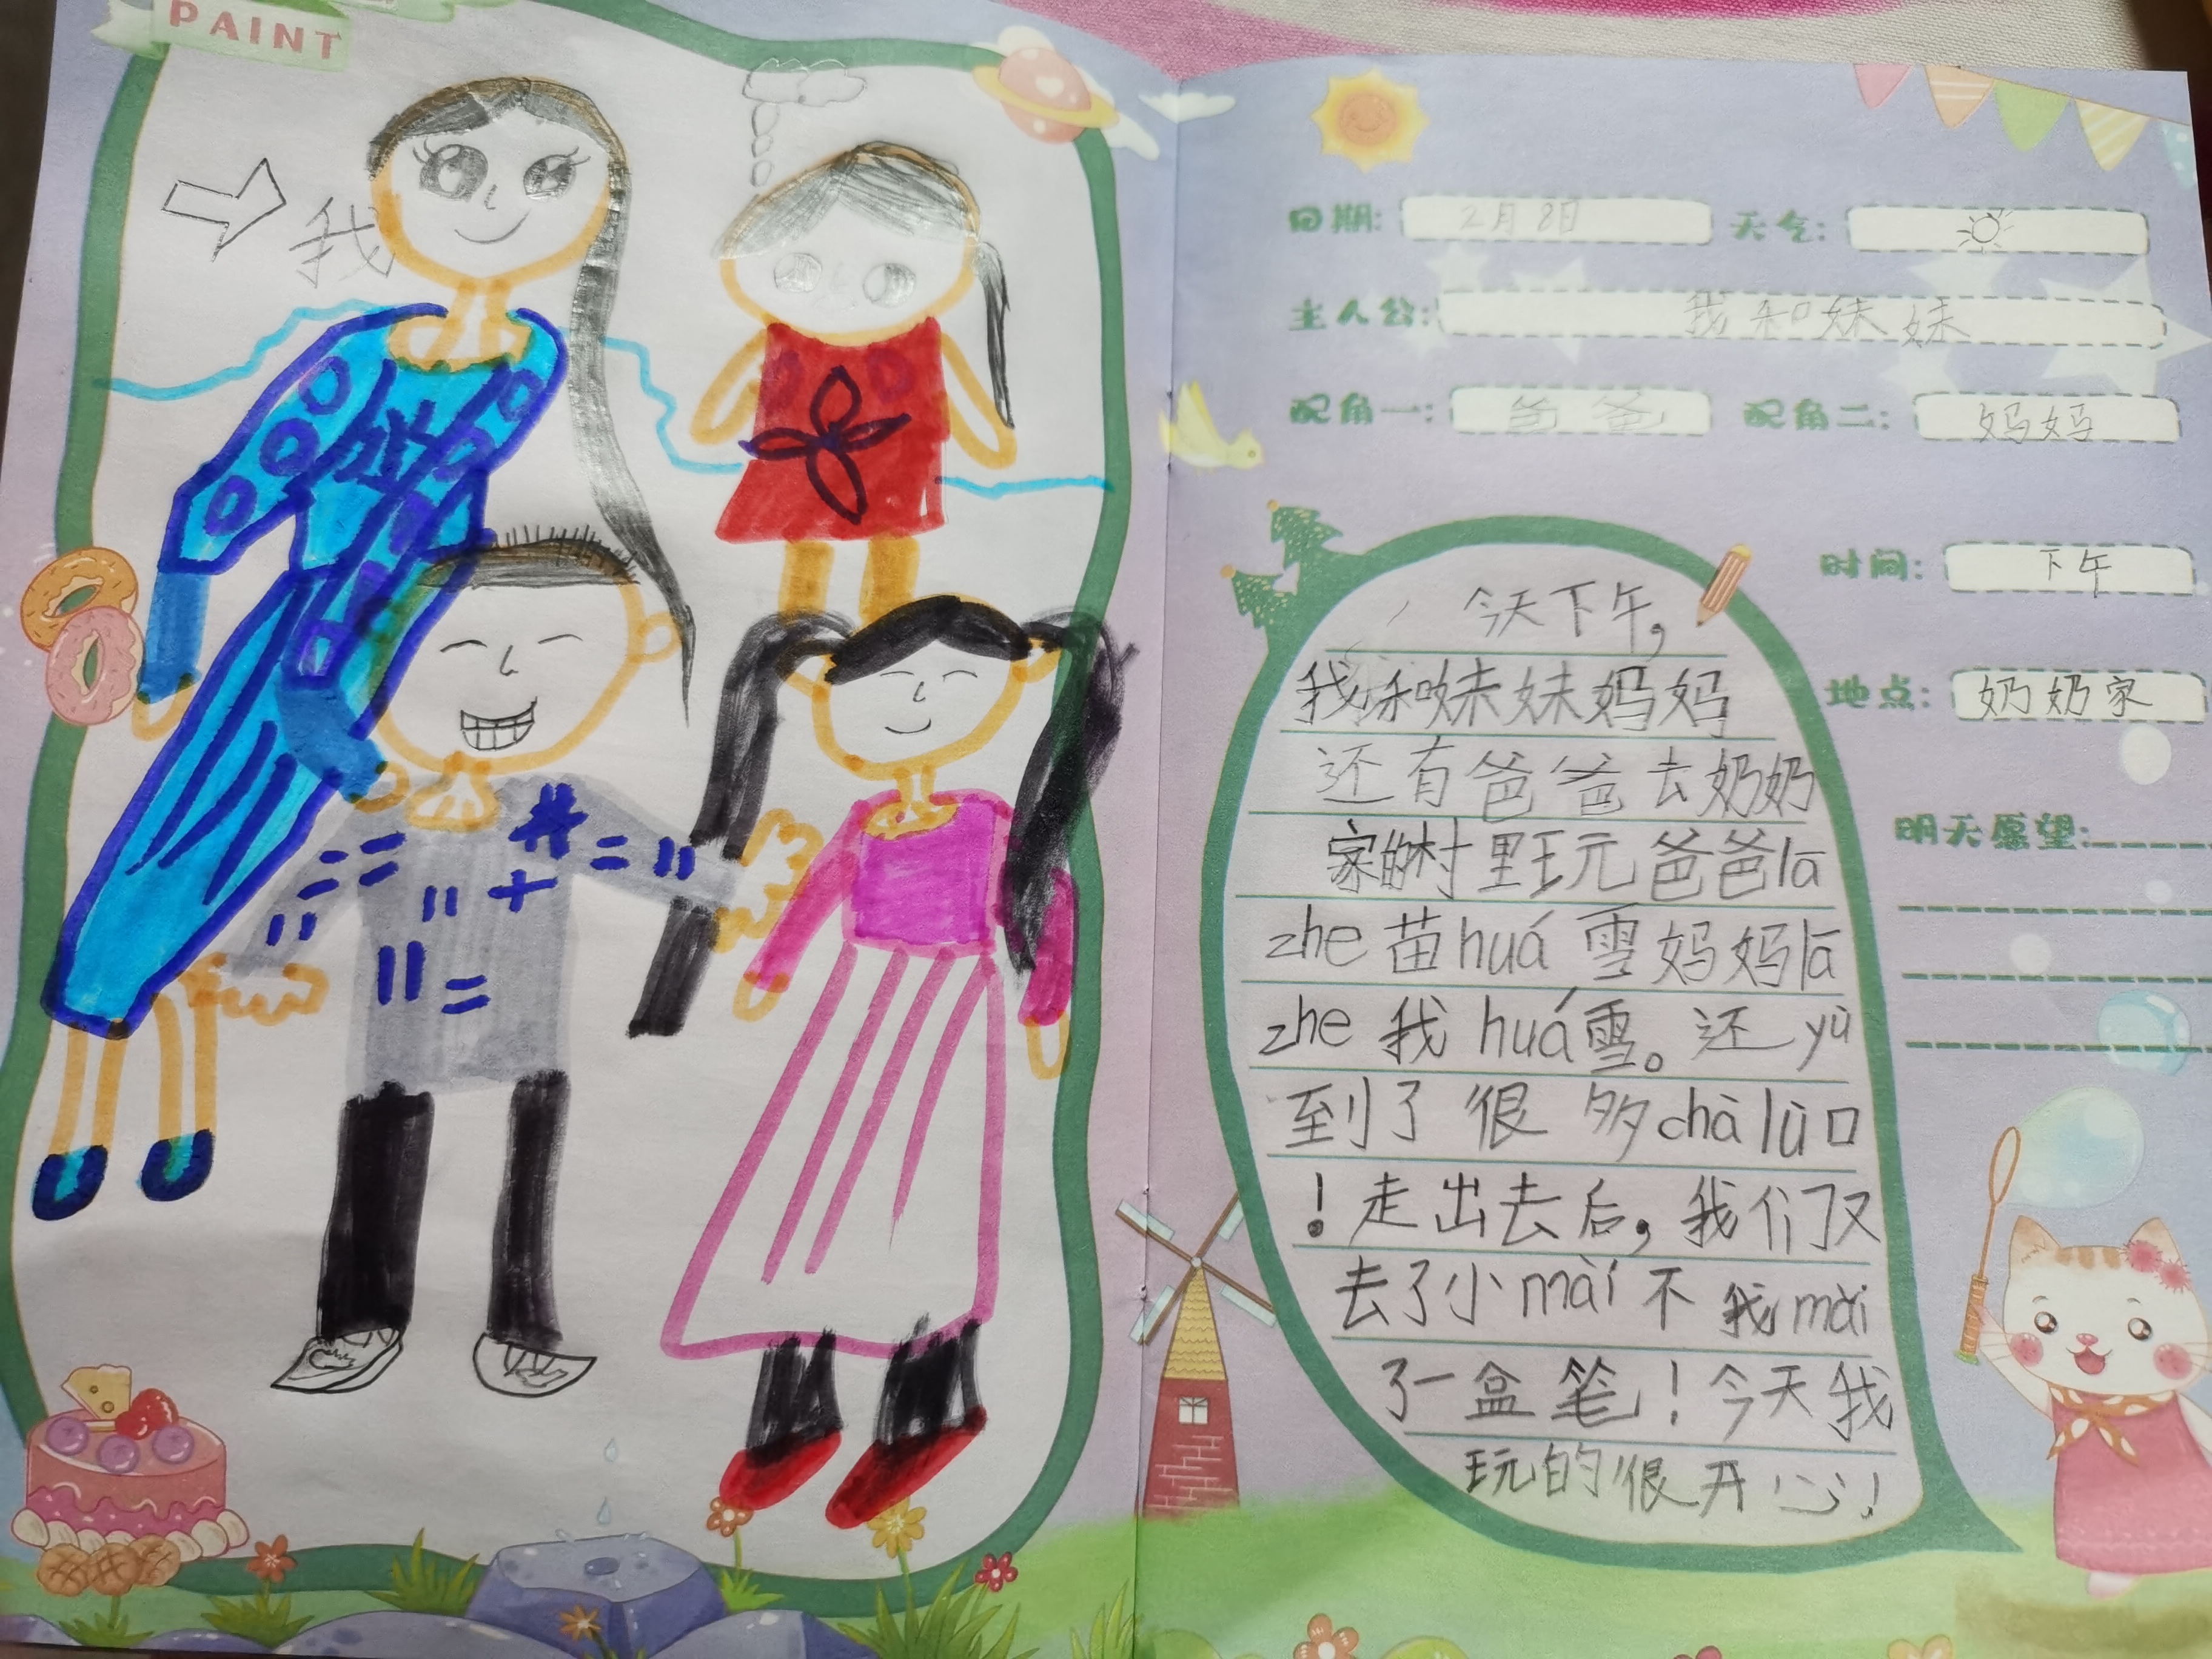 PAINT
我
日期: 2月8日 天气:
主人公: 我和妹妹
配角一: 爸爸 配角二: 妈妈
时间: 下午
地点: 奶奶家
明天愿望:
今天下午,
我和妹妹妈妈
还有爸爸去奶奶
家的村里玩爸爸lā
zhe苗huá雪妈妈lā
zhe我huá雪。还yù
到了很多chà lù口
!走出去后,我们又
去了小mài不我mǎi
了一盒笔!今天我
玩的很开心!